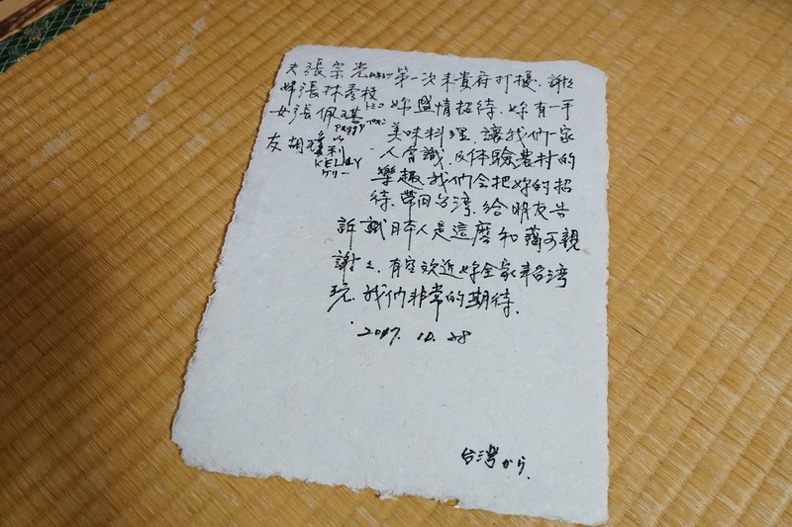 夫張宗光 第一次来貴府打擾，謝々
婦張林秀枝 トミコ 妳盛情招待，妳有一手
女張佩琪 Peggy 美味料理，讓我們一家
友胡瓊利 KELLY ケリー 人賞識，及体驗農村的
樂趣，我們会把妳的招
待，帶回台湾，給朋友告
訴 日本人是這麼和藹可親
謝々，有空欢迎妳全家来台湾
玩，我們非常的期待．
2017. 10. 28
台湾から．